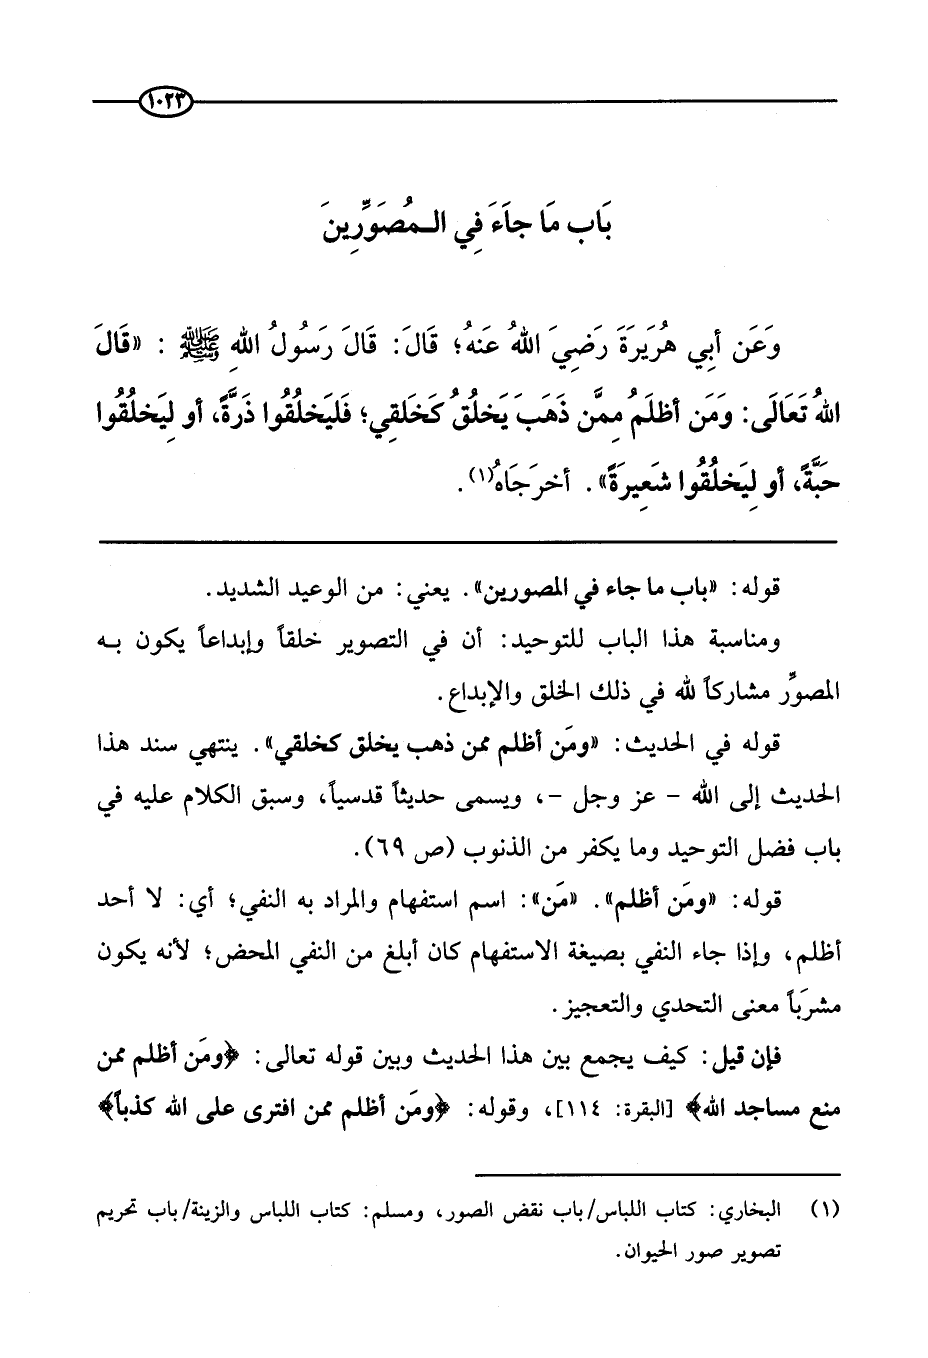 ١٠٢٣
بَاب مَا جاَءَ فِي الـمُصَوِّرِينَ
وَعَن أبِي هُرَيرَةَ رَضِيَ اللهُ عَنهُ؛ قَالَ: قَالَ رَسُولُ اللهِ ﷺ : «قَالَ
اللهُ تَعَالَى: وَمَن أظلَمُ مِمَّن ذَهَبَ يَخلُقُ كَخَلقِي؛ فَليَخلُقُوا ذَرَّةً، أو لِيَخلُقُوا
حَبَّةً، أو لِيَخلُقُوا شَعِيرَةً». أخرَجَاهُ(١).
قوله: «باب ما جاء في المصورين». يعني: من الوعيد الشديد.
ومناسبة هذا الباب للتوحيد: أن في التصوير خلقاً وإبداعاً يكون به
المصوِّر مشاركاً لله في ذلك الخلق والإبداع.
قوله في الحديث: «ومَن أظلم ممن ذهب يخلق كخلقي». ينتهي سند هذا
الحديث إلى الله - عز وجل -، ويسمى حديثاً قدسياً، وسبق الكلام عليه في
باب فضل التوحيد وما يكفر من الذنوب (ص ٦٩).
قوله: «ومَن أظلم». «مَن»: اسم استفهام والمراد به النفي؛ أي: لا أحد
أظلم، وإذا جاء النفي بصيغة الاستفهام كان أبلغ من النفي المحض؛ لأنه يكون
مشرَباً معنى التحدي والتعجيز.
فإن قيل: كيف يجمع بين هذا الحديث وبين قوله تعالى: ﴿ومَن أظلم ممن
منع مساجد الله﴾ [البقرة: ١١٤]، وقوله: ﴿ومَن أظلم ممن افترى على الله كذباً﴾
(١) البخاري: كتاب اللباس/باب نقض الصور، ومسلم: كتاب اللباس والزينة/باب تحريم
تصوير صور الحيوان.